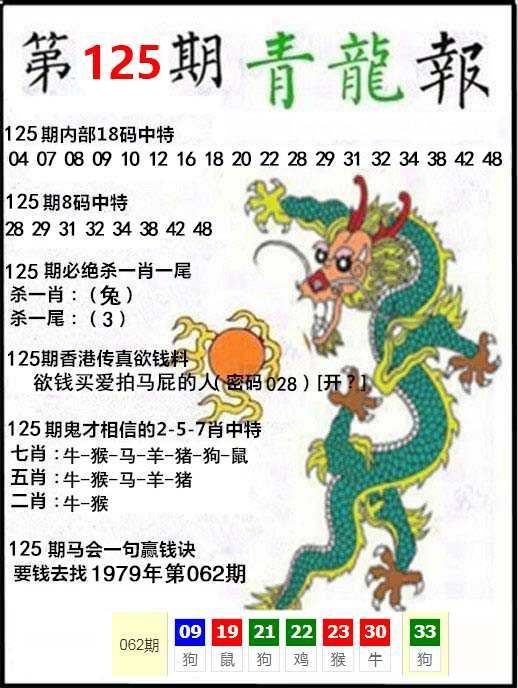 第125期 青龍報
125期内部18码中特
04 07 08 09 10 12 16 18 20 22 28 29 31 32 34 38 42 48
125期8码中特
28 29 31 32 34 38 42 48
125期必绝杀一肖一尾
杀一肖：（兔）
杀一尾：（3）
125期香港传真欲钱料
欲钱买爱拍马屁的人（密码028）[开？]
125期鬼才相信的2-5-7肖中特
七肖：牛-猴-马-羊-猪-狗-鼠
五肖：牛-猴-马-羊-猪
二肖：牛-猴
125期马会一句赢钱诀
要钱去找1979年第062期
062期 09 19 21 22 23 30 33
狗 鼠 狗 鸡 猴 牛 狗